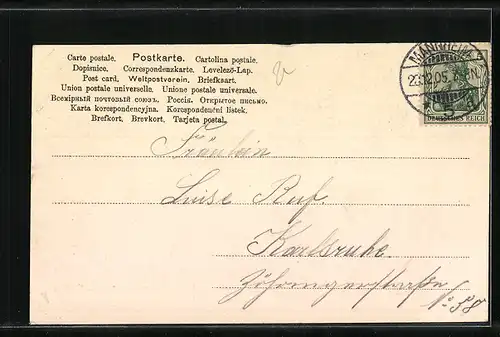 Carte postale. Postkarte. Cartolina postale.
Dopisnice. Correspondenzkarte. Levelező-Lap.
Post card. Weltpostverein. Briefkaart.
Union postale universelle. Unione postale universale.
Всемірный почтовый союзъ. Россія. Открытое письмо.
Karta korespondencyjna. Korespondenční lístek.
Brefkort. Brevkort. Tarjeta postal.
MANNHEIM
23.12.05
DEUTSCHES REICH
Fräulein
Luise Ruf.
Karlsruhe.
Zähringerstraße
No 58